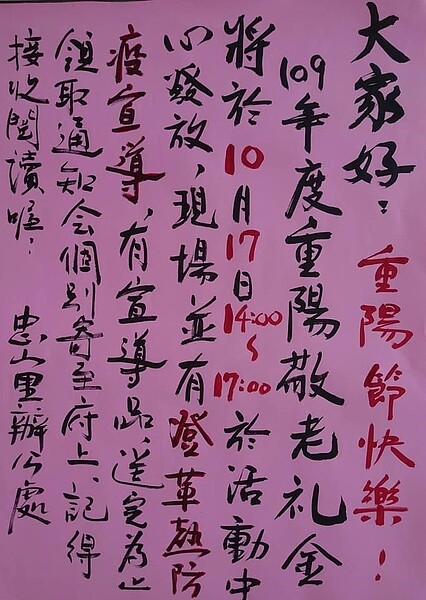 大家好：重陽節快樂！
109年度重陽敬老礼金
將於10月17日14:00~17:00於活動中
心發放，現場並有登革熱防
疫宣導，有宣導品，送完為止
領取通知会個別寄至府上，記得
接收閱讀喔，忠山里辦公處